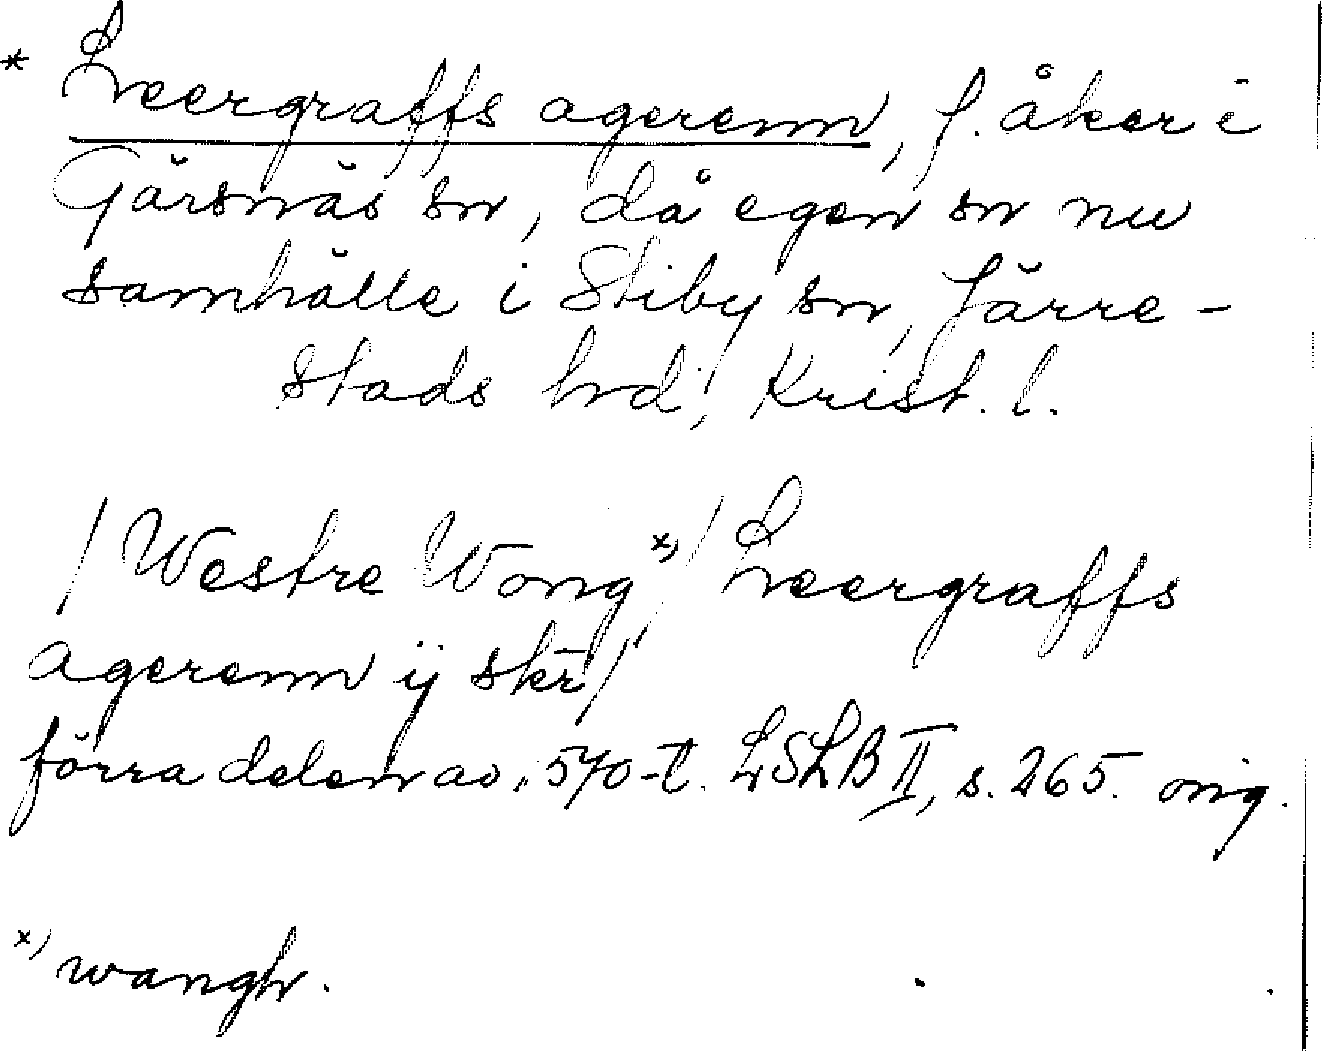 * Leergraffs agerenn, f. åker i
Gärsnäs sn, då egen sn nu
samhälle i Stiby sn, Järre-
stads hd, Krist. l.
/Westre Wong x)/ Leergraffs
agerenn ij skr/
förra delen av 1570-t. LSLB II, s. 265. orig.
x) wangh.